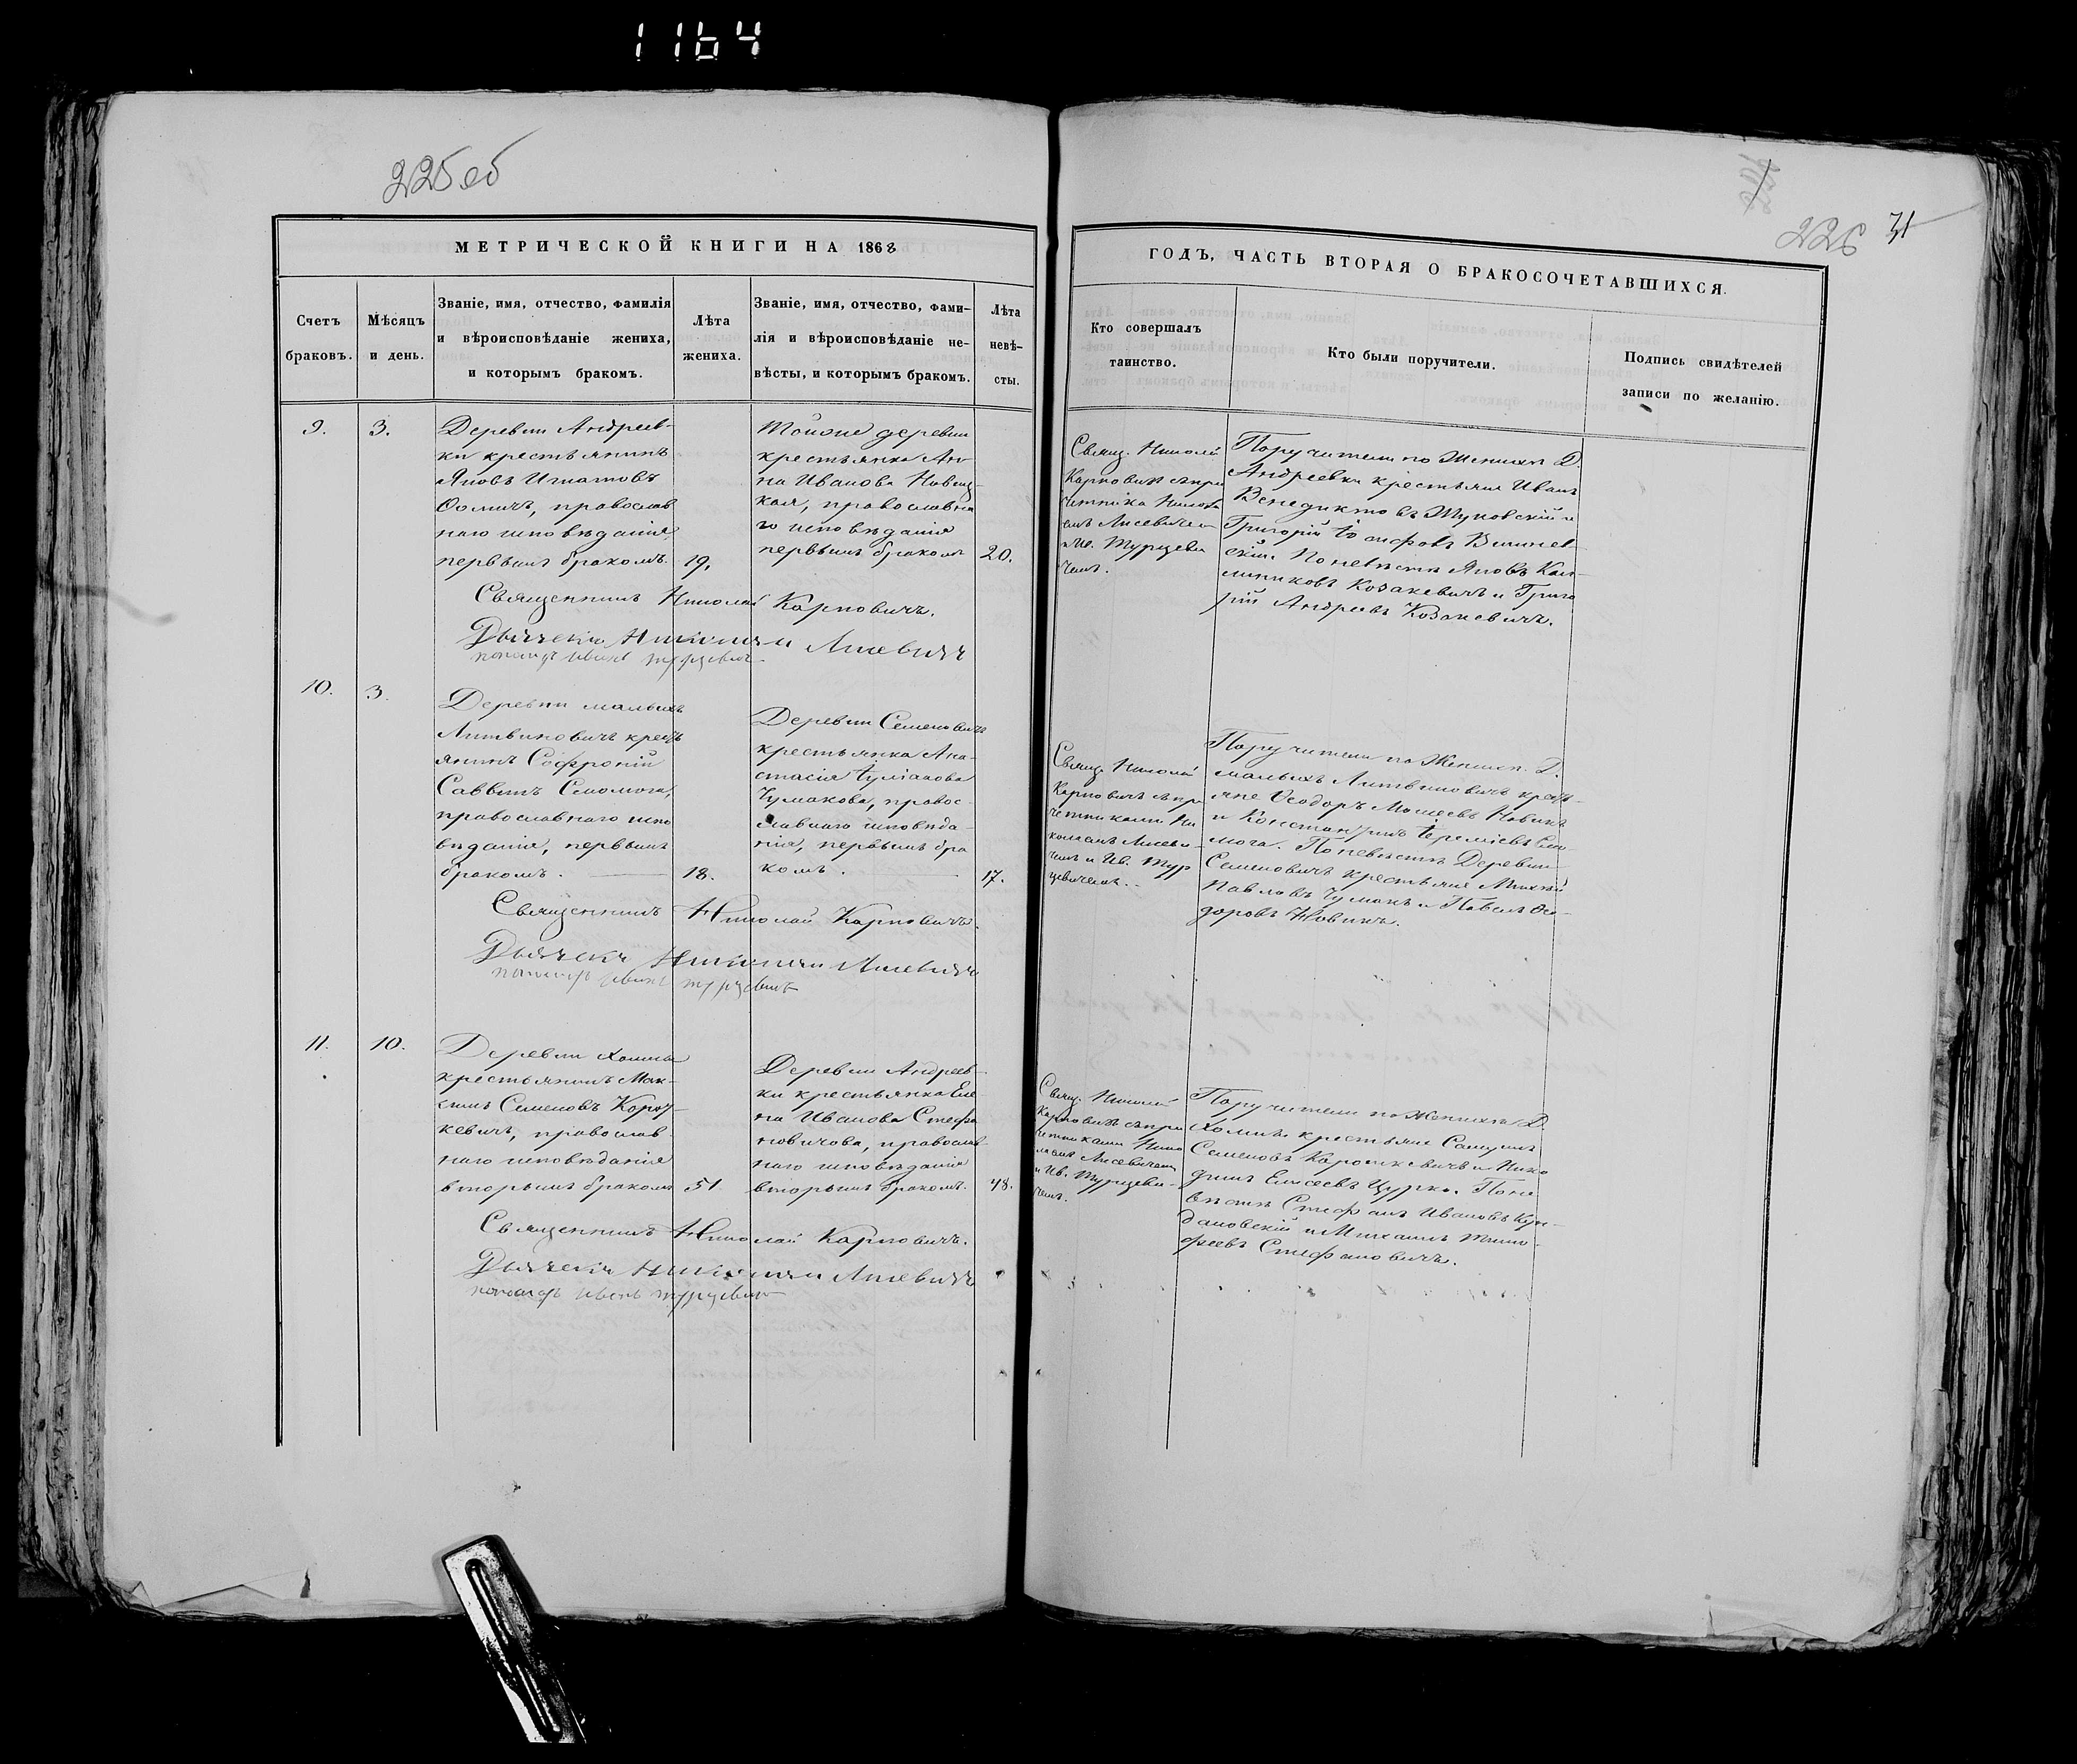 1164
225об
226 31
МЕТРИЧЕСКОЙ КНИГИ НА 1868
ГОДЪ, ЧАСТЬ ВТОРАЯ О БРАКОСОЧЕТАВШИХСЯ.
Счетъ
браковъ.
Мѣсяцъ
и день.
Званіе, имя, отчество, фамилія
и вѣроисповѣданіе жениха,
и которымъ бракомъ.
Лѣта
жениха.
Званіе, имя, отчество, фами-
лія и вѣроисповѣданіе не-
вѣсты, и которымъ бракомъ.
Лѣта
невѣ-
сты.
Кто совершалъ
таинство.
Кто были поручители.
Подпись свидѣтелей
записи по желанію.
9.
3.
Деревни Андреев-
ки крестьянинъ
Яковъ Игнатовъ
Ѳомичъ, православ
наго исповѣданія,
первымъ бракомъ.
19.
Тойже деревни
крестьянка Ан-
на Иванова Новиц-
кая, православна
го исповѣданія
первымъ бракомъ
20.
Свящ. Николай
Карповичъ съ при
четника Никола
емъ Лисевичем
и Ив. Турцеви
чемъ.
Поручители по Женихѣ Д.
Андреевки крестьяне Иванъ
Венедиктовъ Жуковскій и
Григорій Іосифовъ Вишнев-
скій. По невѣстѣ Яковъ
Козакевичъ и Григо
рій Андреевъ Козакевичъ.
Священникъ Николай Карповичъ.
Дьячекъ Николай Лисевичъ
пономарь Иванъ Турцевичъ
10.
3.
Деревни малыхъ
Литвиновичъ крест
янинъ Софроній
Саввинъ Сикомога,
православнаго испо
вѣданія, первымъ
бракомъ.
18.
Деревни Семеновичъ
крестьянка Ана-
стасія Іуліанова
Чумакова, правос-
лавнаго исповѣда-
нія, первымъ бра
комъ.
17.
Свящ. Николай
Карповичъ съ при
четниками Ни
колаемъ Лисеви-
чемъ и Ив. Тур
цевичемъ.
Поручители по Женихѣ. Д.
малыхъ Литвиновичъ крест-
яне Ѳеодоръ Моисеевъ Новикъ
и Константинъ Іереміевъ
мога. По невѣстѣ Деревни
Семеновичъ крестьяне
Павловъ Чумакъ и Павелъ Ѳео-
доровъ Новикъ.
Священникъ Николай Карповичъ.
Дьячекъ Николай Лисевичъ
пономарь Иванъ Турцевичъ
11.
10.
Деревни Хомичи
крестьянинъ Мак-
симъ Семеновъ
кевичъ, православ-
наго исповѣданія
вторымъ бракомъ
51.
Деревни Андреев-
ки крестьянка Еле-
на Иванова Стефа
новичова, православ-
наго исповѣданія
вторымъ бракомъ.
48.
Свящ. Николай
Карповичъ съ при
четниками Нико
лаемъ Лисевичемъ
и Ив. Турцеви-
чемъ.
Поручители по Женихѣ Д.
Хомичъ крестьяне
Семеновъ и Нико
димъ Елисеевъ Цурко. По не
вѣстѣ Стефанъ Ивановъ
дановскій и Михаилъ Тимо-
феевъ Стефановичъ.
Священникъ Николай Карповичъ.
Дьячекъ Николай Лисевичъ
пономарь Иванъ Турцевичъ